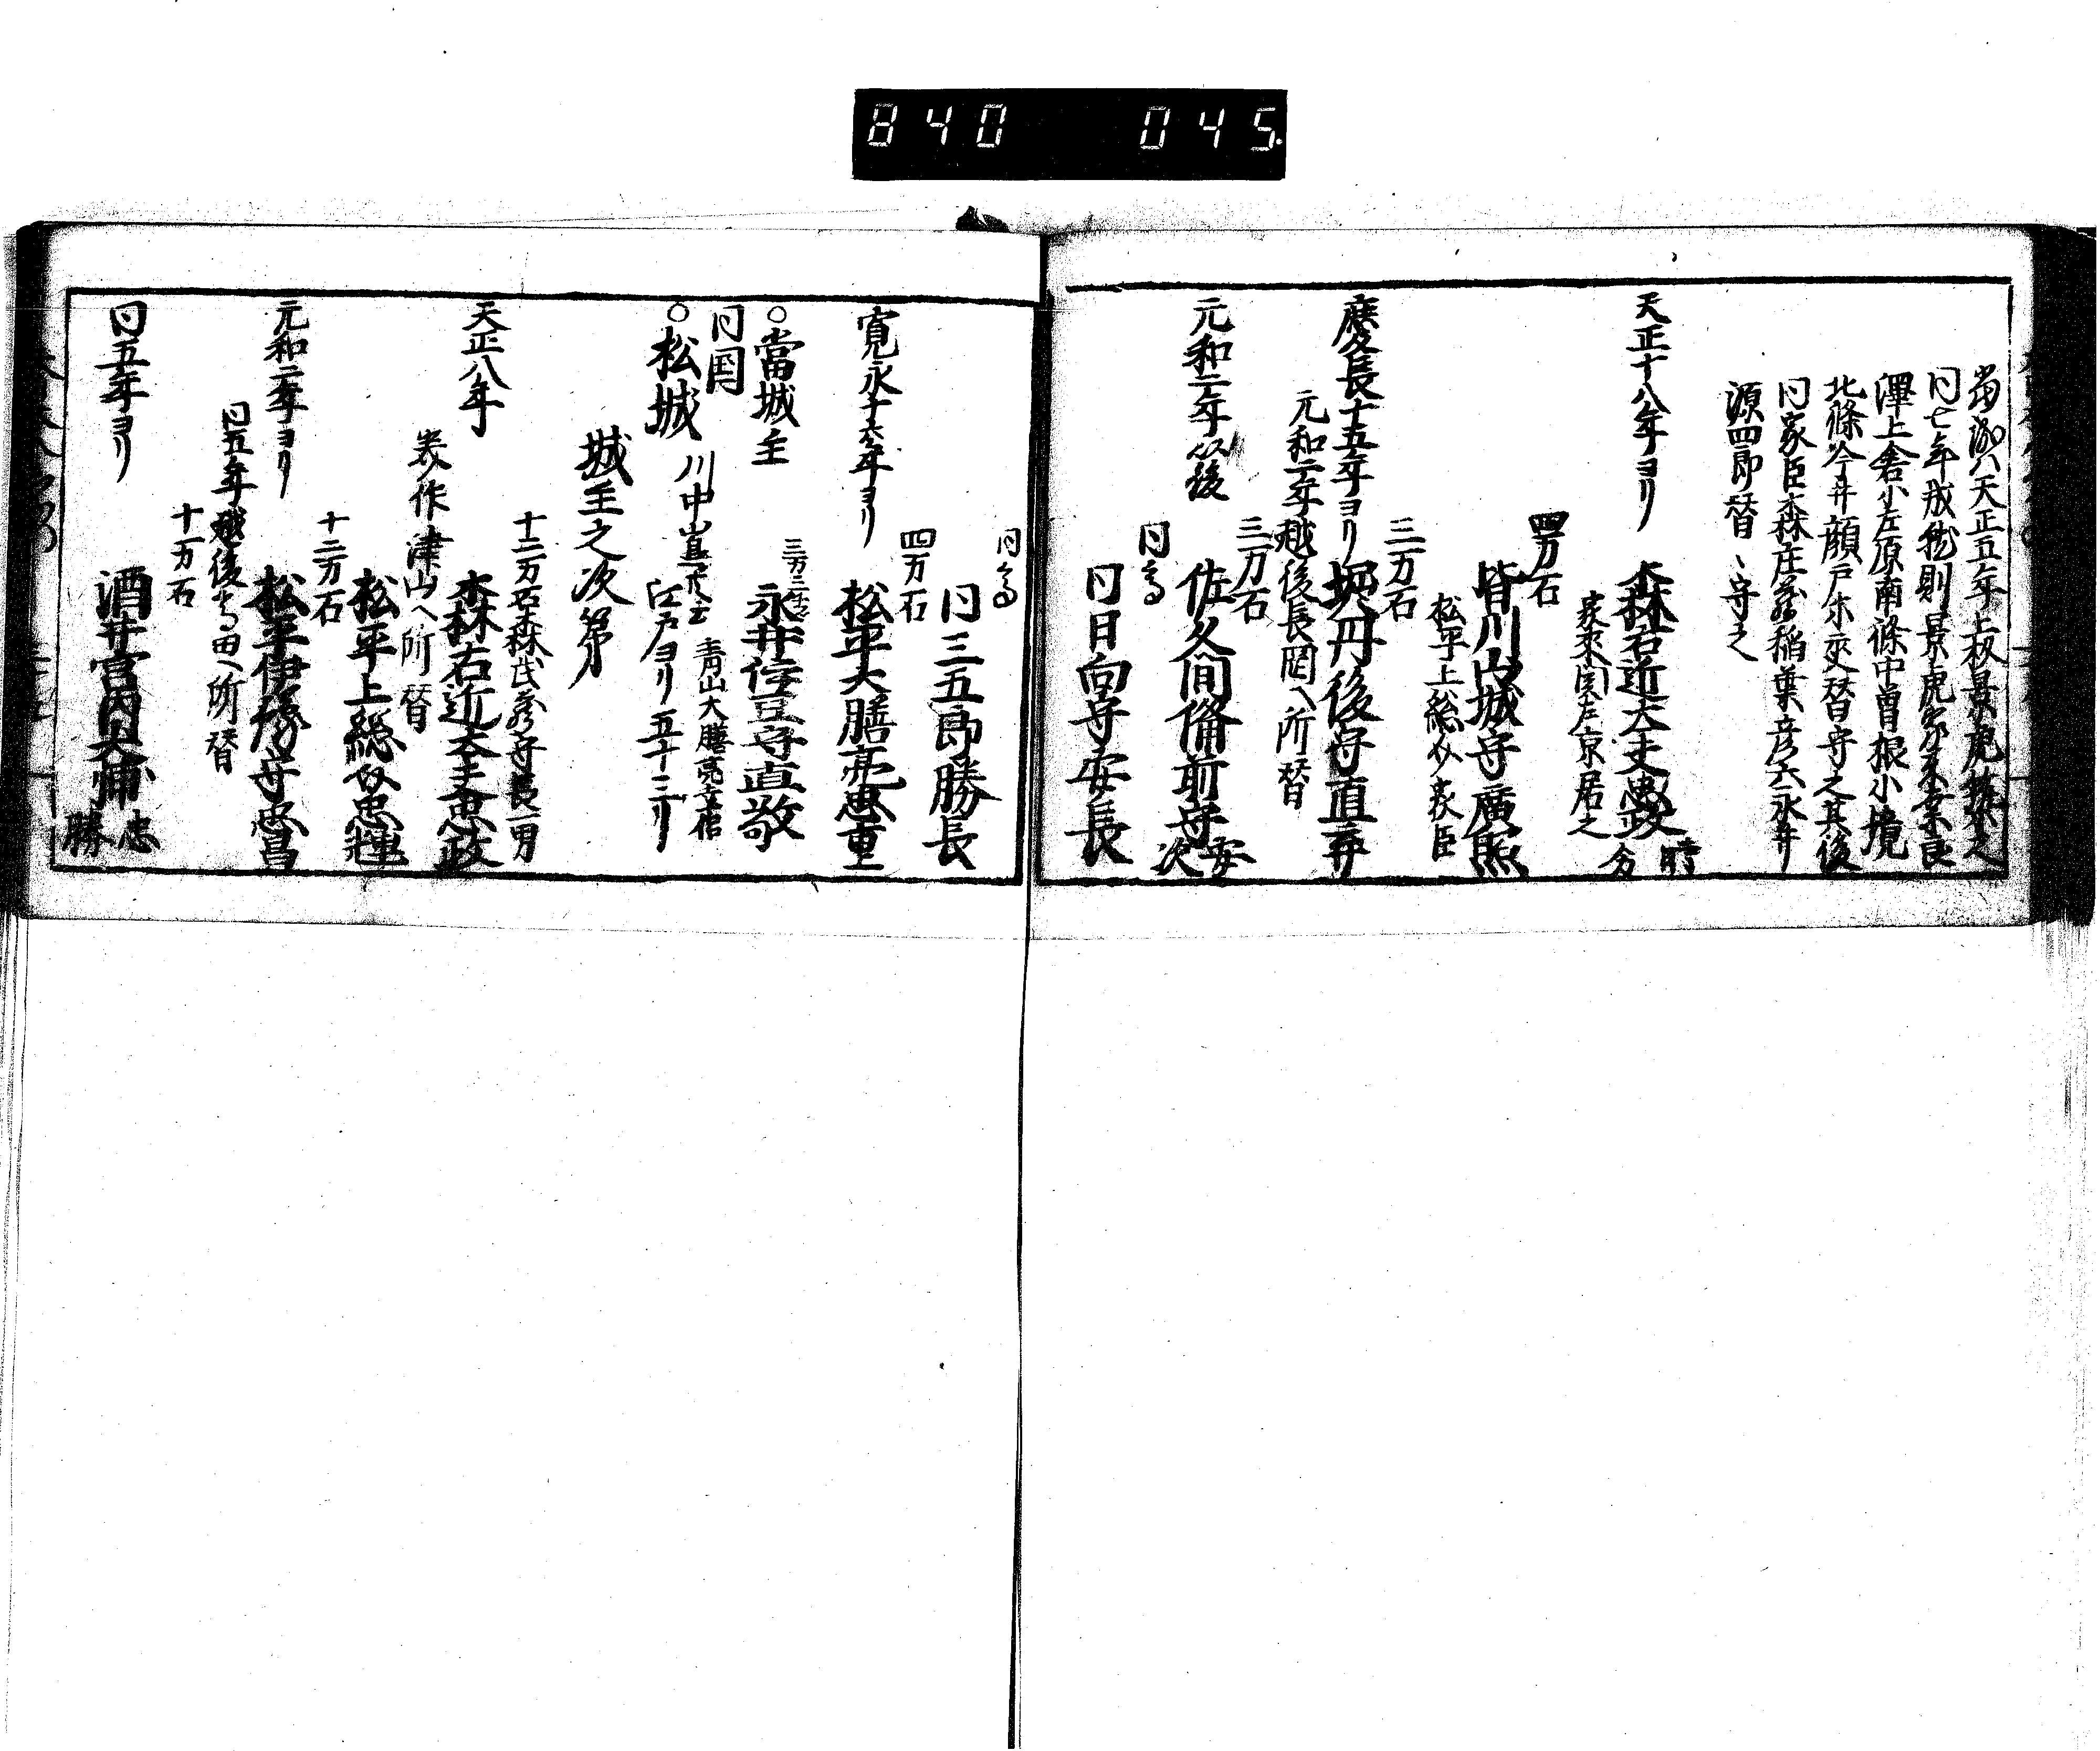 840 045
當城ハ天正五年上杦景虎㧞之
同七年戒能則景虎家来桒良
澤上倉小左原南條中曽根小境
北條今井顔戸木交替守之其後
同家臣森庄藏稲葉彦六永井
源四郎替ヽ守之
天正十八年ヨリ 森右近太夫忠政 時分
家来関左京居之
四万石
皆川山城守廣照
松平上総介家臣
三万石
慶長十五年ヨリ 堀丹後守直寄
元和二年越後長岡ヘ所替
三万石
元和二年以後 佐久間備前守安次
同高
同日向守安長
同高
同三五郎勝長
四万石
寛永十六年ヨリ 松平大膳亮忠重
三万三千石
○當城主 永井伊豆守直敬
同国 青山大膳亮幸福
○松城 川中嶋 江戸ヨリ五十三リ
城主之次第
十二万石森武藏守長一男
天正八年 森右近太夫忠政
美作津山ヘ所替
松平上総介忠輝
十二万石
元和二年ヨリ 松平伊豫守忠昌
同五年越後高田ヘ所替
十一万石
同五年ヨリ 酒井宮内大輔忠勝